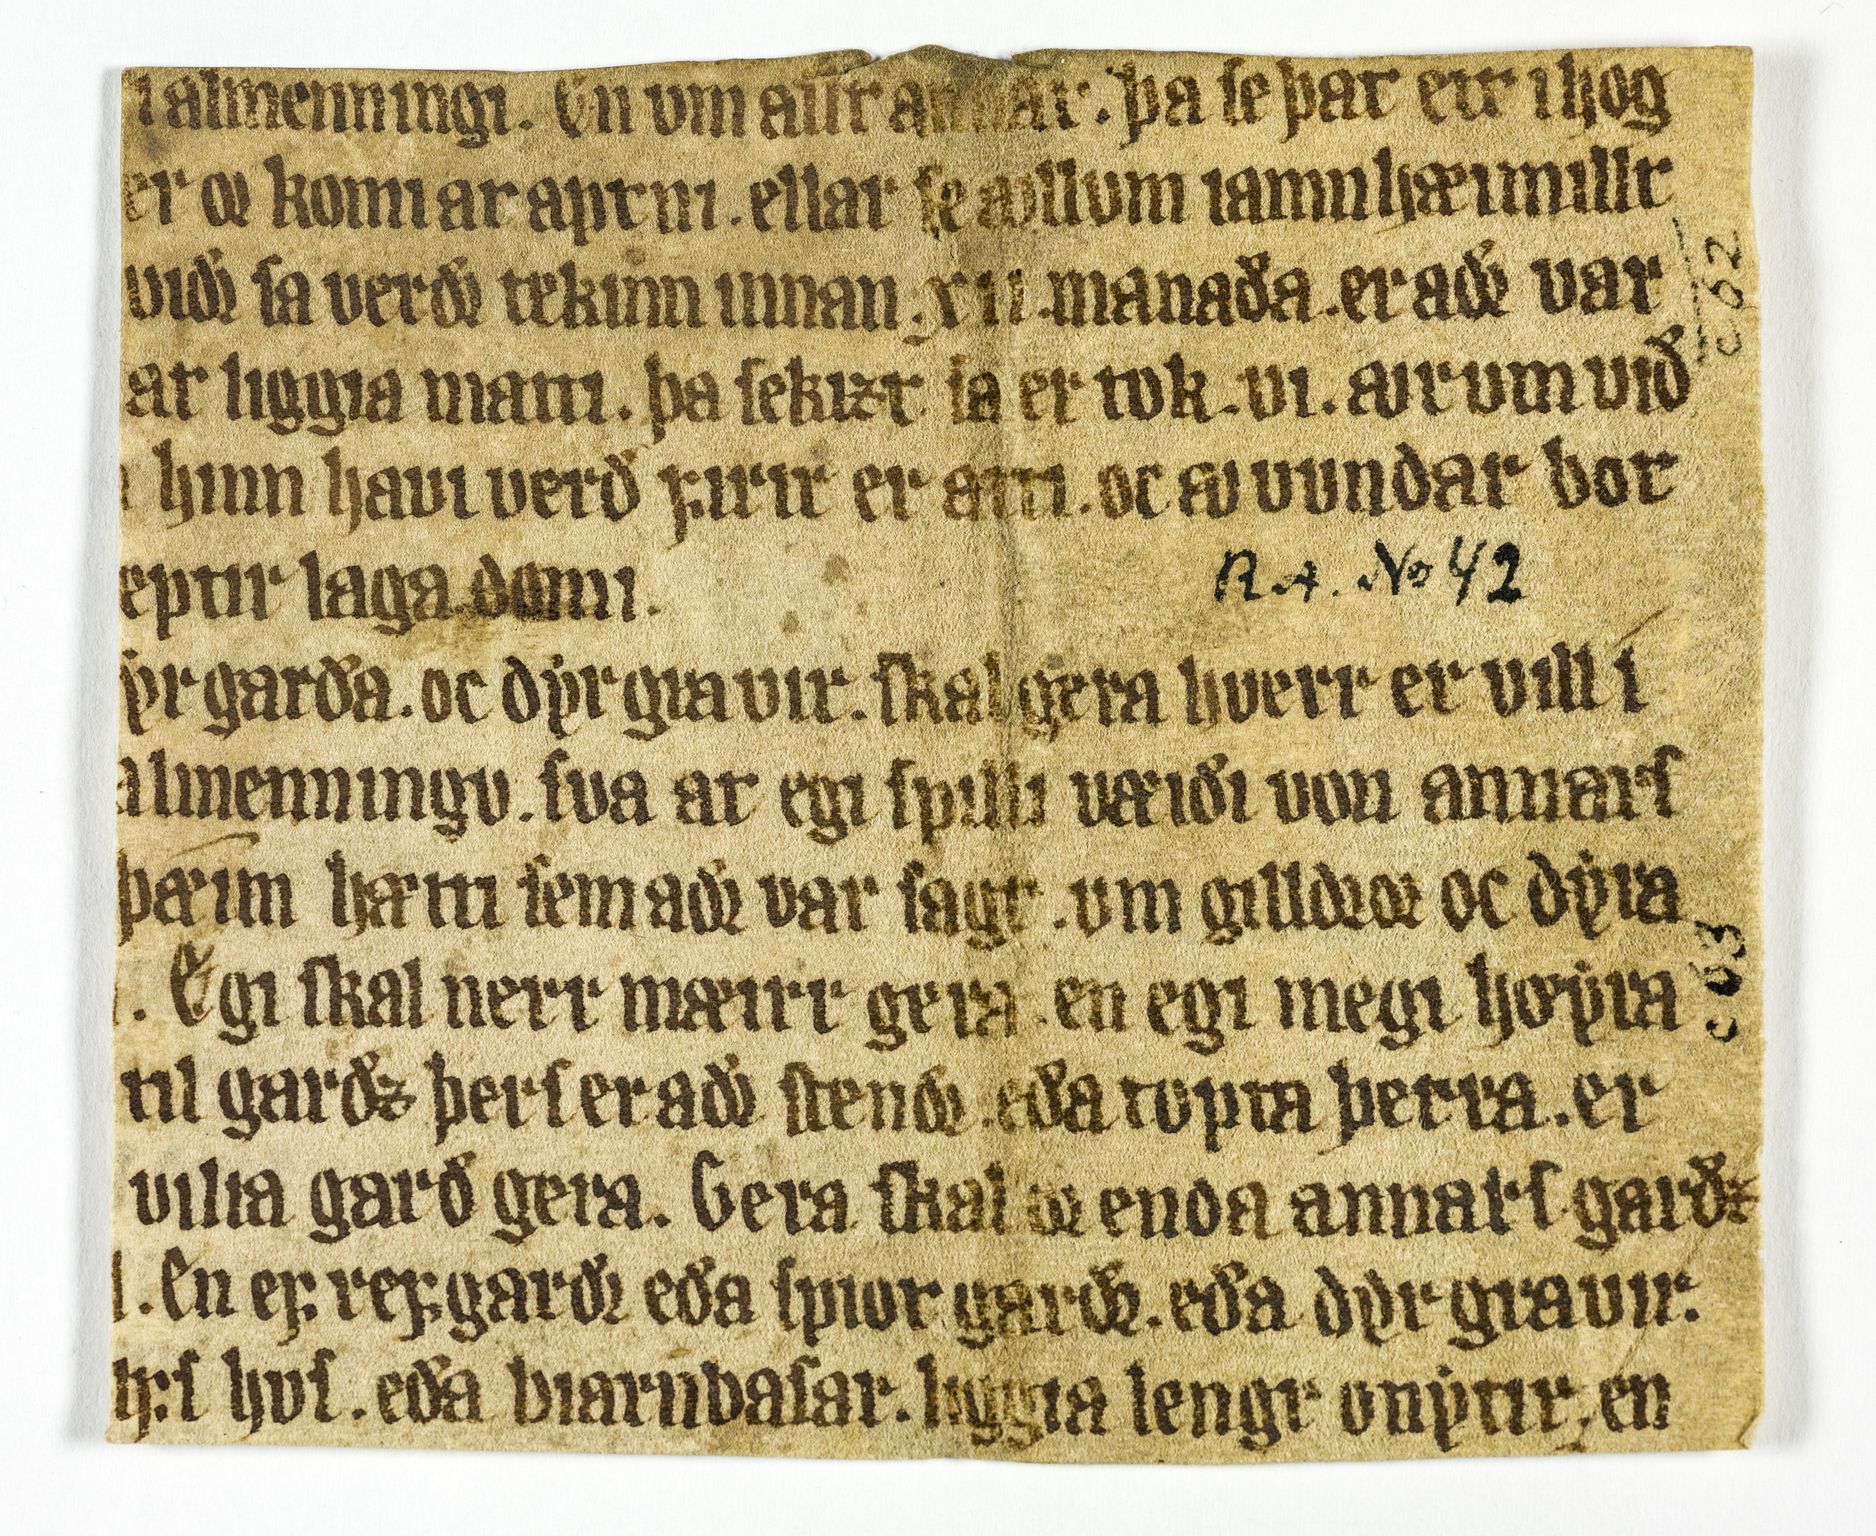 i almenningi. En um allt annat. þa se þat eitt i hog
er oꝛ komi at aptni. ellar se ꜵllum iamnhæimillt
viðꝛ sa verðꝛ tekinn innan .xii. manaða. er aðꝛ var
at liggia matti. þa sekizt sa er tok .vi. ꜵirum við
hinn havi verð ꝼirir er atti. oc ꜵvundar bot
eptir laga domi.
R.A. No 42
ẏr garða. oc dẏr gravir. skal gera hverr er vill í
almenningu. sva at egi spilli væiði von annars
þæim hætti sem aðꝛ var sagt. um gilldꝛoꝛ oc dẏra
. Egi skal nerr mæirr gera. en egi megi hœẏra
til garðz þers er aðꝛ stendꝛ. eða topta þeira. er
vilia garð gera. Gera skal oꝛ enda annars garðz
. En eꝼ reꝼgarðꝛ eða spiot garðꝛ. eða dẏr gravir.
hꝼs hus. eða biarnbasar. liggia lengr onẏtir. en
c 62
c 63